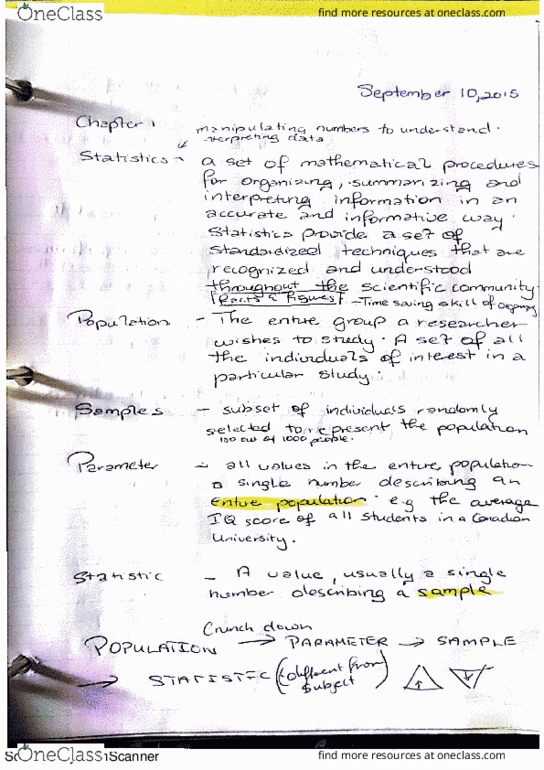 OneClass
find more resources at oneclass.com
September 10, 2015
Chapter 1
manipulating numbers to understand.
interpreting data
Statistics - a set of mathematical procedures
for organizing, summarizing and
interpreting information in an
accurate and informative way.
Statistics provide a set of
standardized techniques that are
recognized and understood
throughout the scientific community
[Facts & Figures] - Time saving skill of
Population - The entire group a researcher
wishes to study. A set of all
the individuals of interest in a
particular study.
Samples - subset of individuals randomly
selected to represent the population
100 out of 1000 people.
Parameter - all values in the entire population
a single number describing an
entire population. e.g the average
IQ score of all students in a Canadian
University.
Statistic - A value, usually a single
number describing a sample
Crunch down
POPULATION → PARAMETER → SAMPLE
→ STATISTIC (different from
subject)
OneClass
Scanner
find more resources at oneclass.com